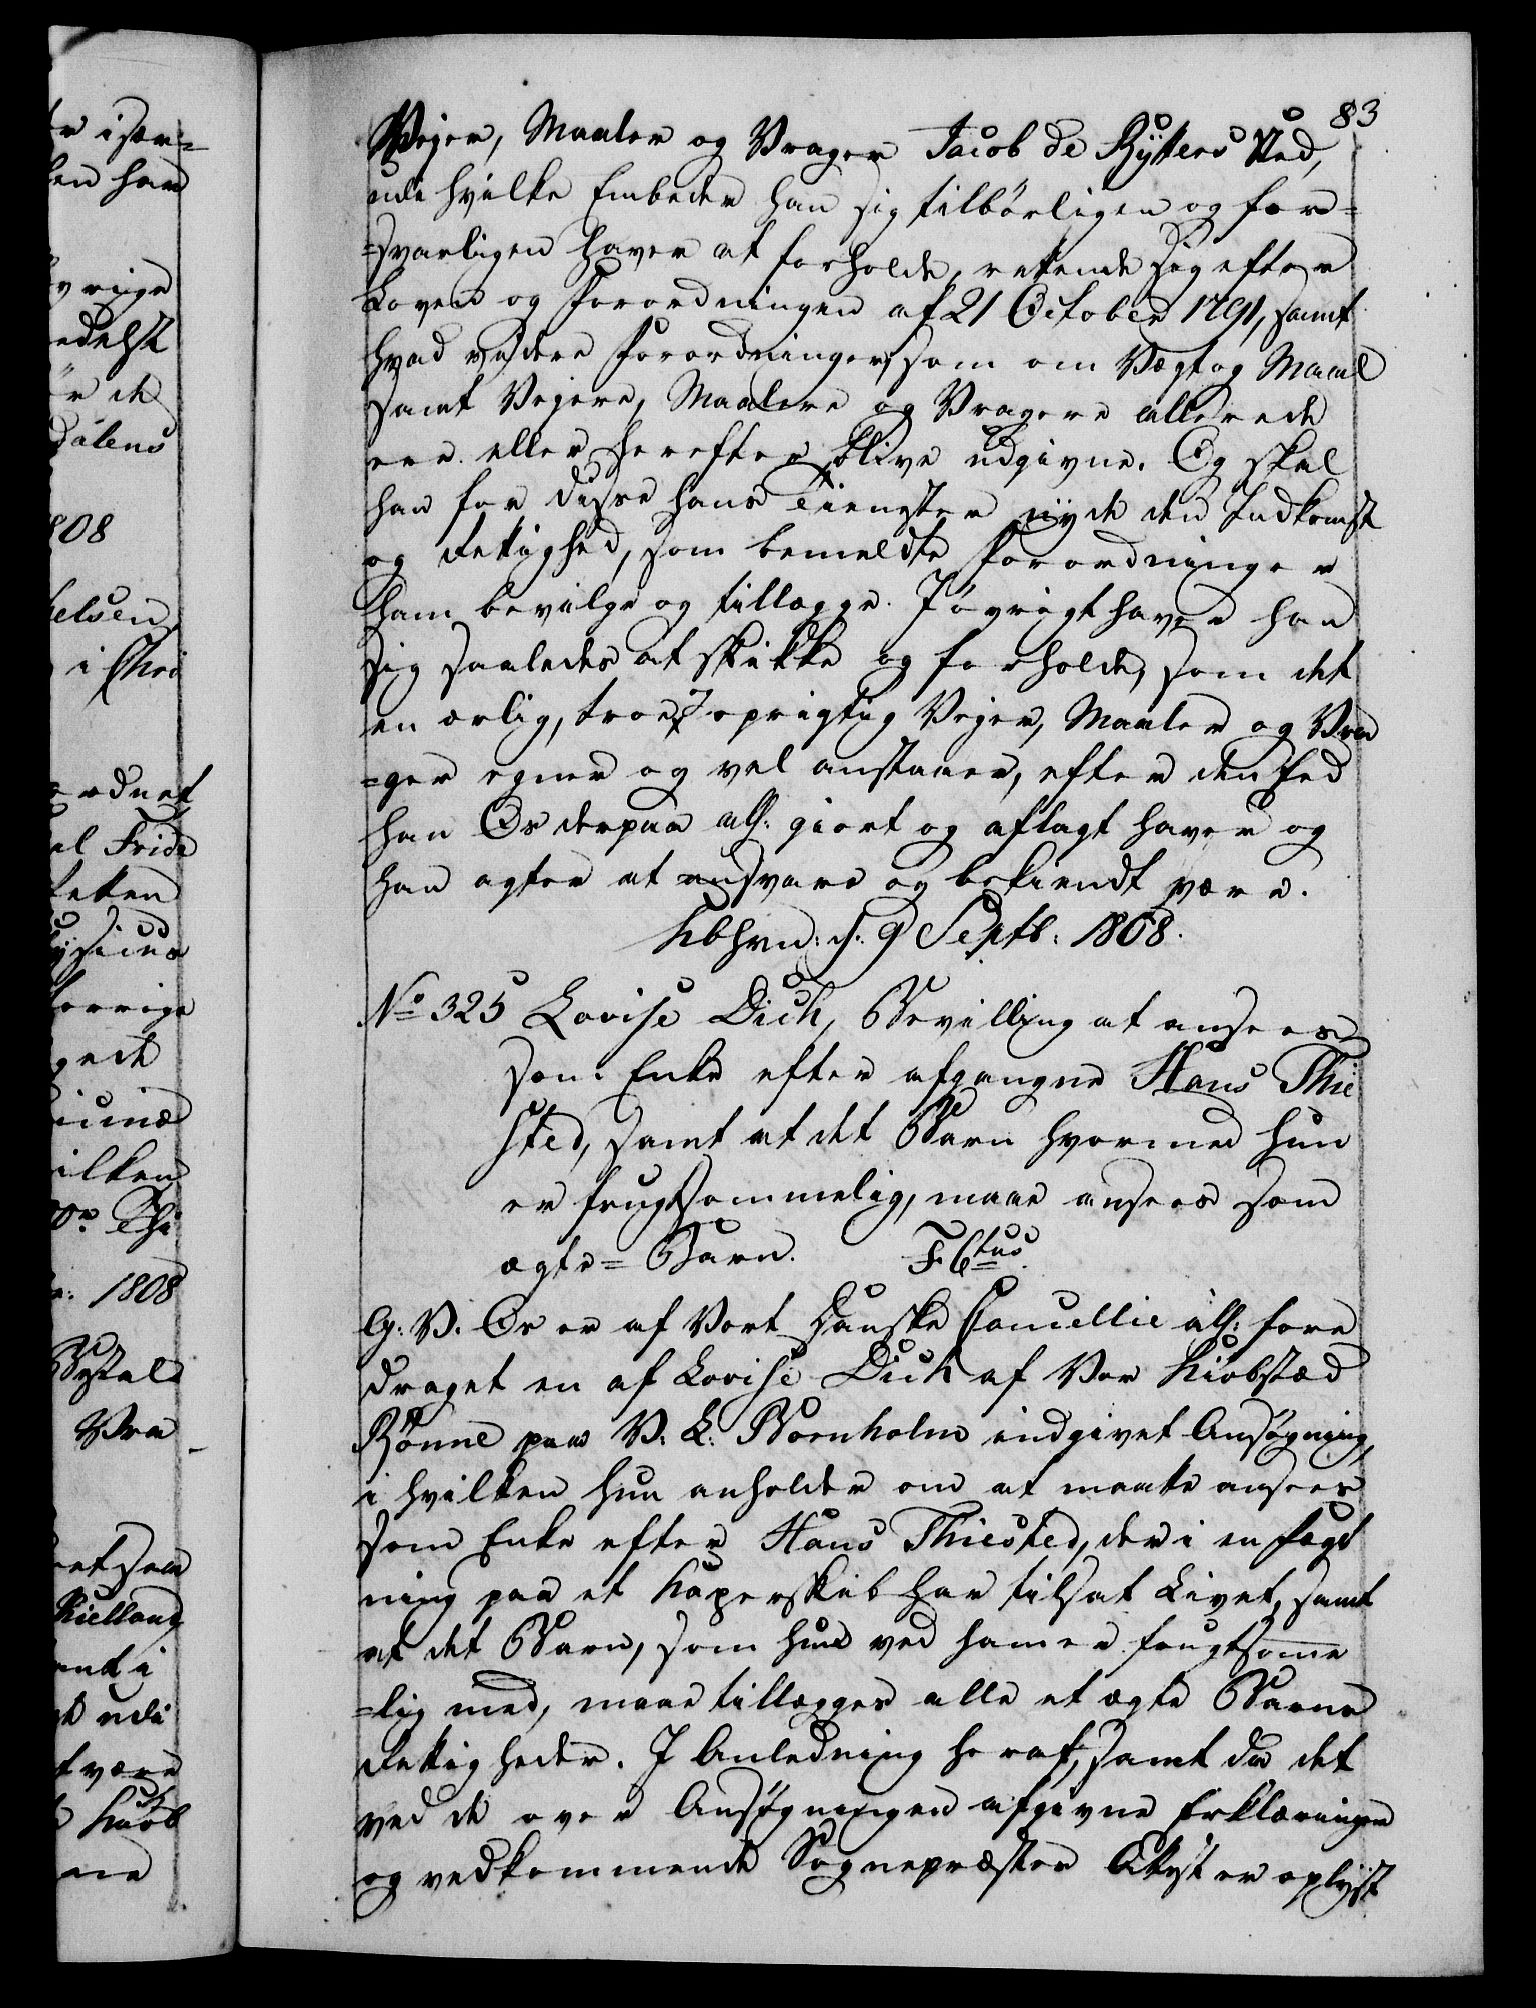 83
Vejer, Maaler og Vrager Jacob de Rÿtters Sted,
udi hvilke Embeder han sig tilbørligen og for=
=svarligen haver at forholde, rettende sig efter
Loven og Forordningen af 21 October 1791, samt
hvad videre Forordninger, som om Vægt og Maal
samt Vejere, Maalere og Vragere allerede
ere eller herefter blive udgivne. Og skal
han for disse hans Tienester nyde den Indkomst
og Rettighed, som bemeldte Forordninger
ham bevilge og tillægge. I øvrigt haver han
sig saaledes at skikke og forholde, som det
en ærlig, troe og oprigtig Vejer, Maaler og Vra
=ger egner og vel anstaaer, efter den Eed
han Os derpaa all: giort og aflagt haver og
han agter at ansvare og bekiendt være.
Kbhvn: d: 9 Septb: 1808.
No 325 Lovise Dich, Bevilling at ansees
som Enke efter afgangne Hans Thie
sted, samt at det Barn hvormed hun
er frugtsommelig, maae ansees som
ægte= Barn. F 6tus
G: V. Os er af Vort Danske Cancellie all: fore
draget en af Lovise Dich af Vor Kiøbstæd
Rønne paa V: L: Bornholm indgivet Ansøgning,
i hvilken hun anholder om at maatte ansees
som Enke efter Hans Thiested, der i en Fægt
ning paa et Kaperskib har tilsat Livet, samt
at det Barn, som hun ved ham er frugtsomme
=lig med, maae tillægges alle et ægte Barns
Rettigheder. I Anledning heraf, samt da det
ved de over Ansøgningen afgivne Erklæringer
og vedkommende Sognepræstes Attest er oplyst